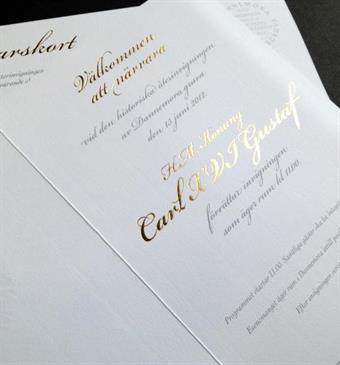 arskort
återinvigningen
Välkommen
att närvara
vid den historiska återinvigningen
av Dannemora gruva
den 13 juni 2012.
H.M. Konung
Carl XVI Gustaf
förrättar invigningen
som äger rum kl 11.00.
Programmet startar 11.00. Samtliga gäster ska
Evenemanget äger rum i Dannemora
Efter invigningen